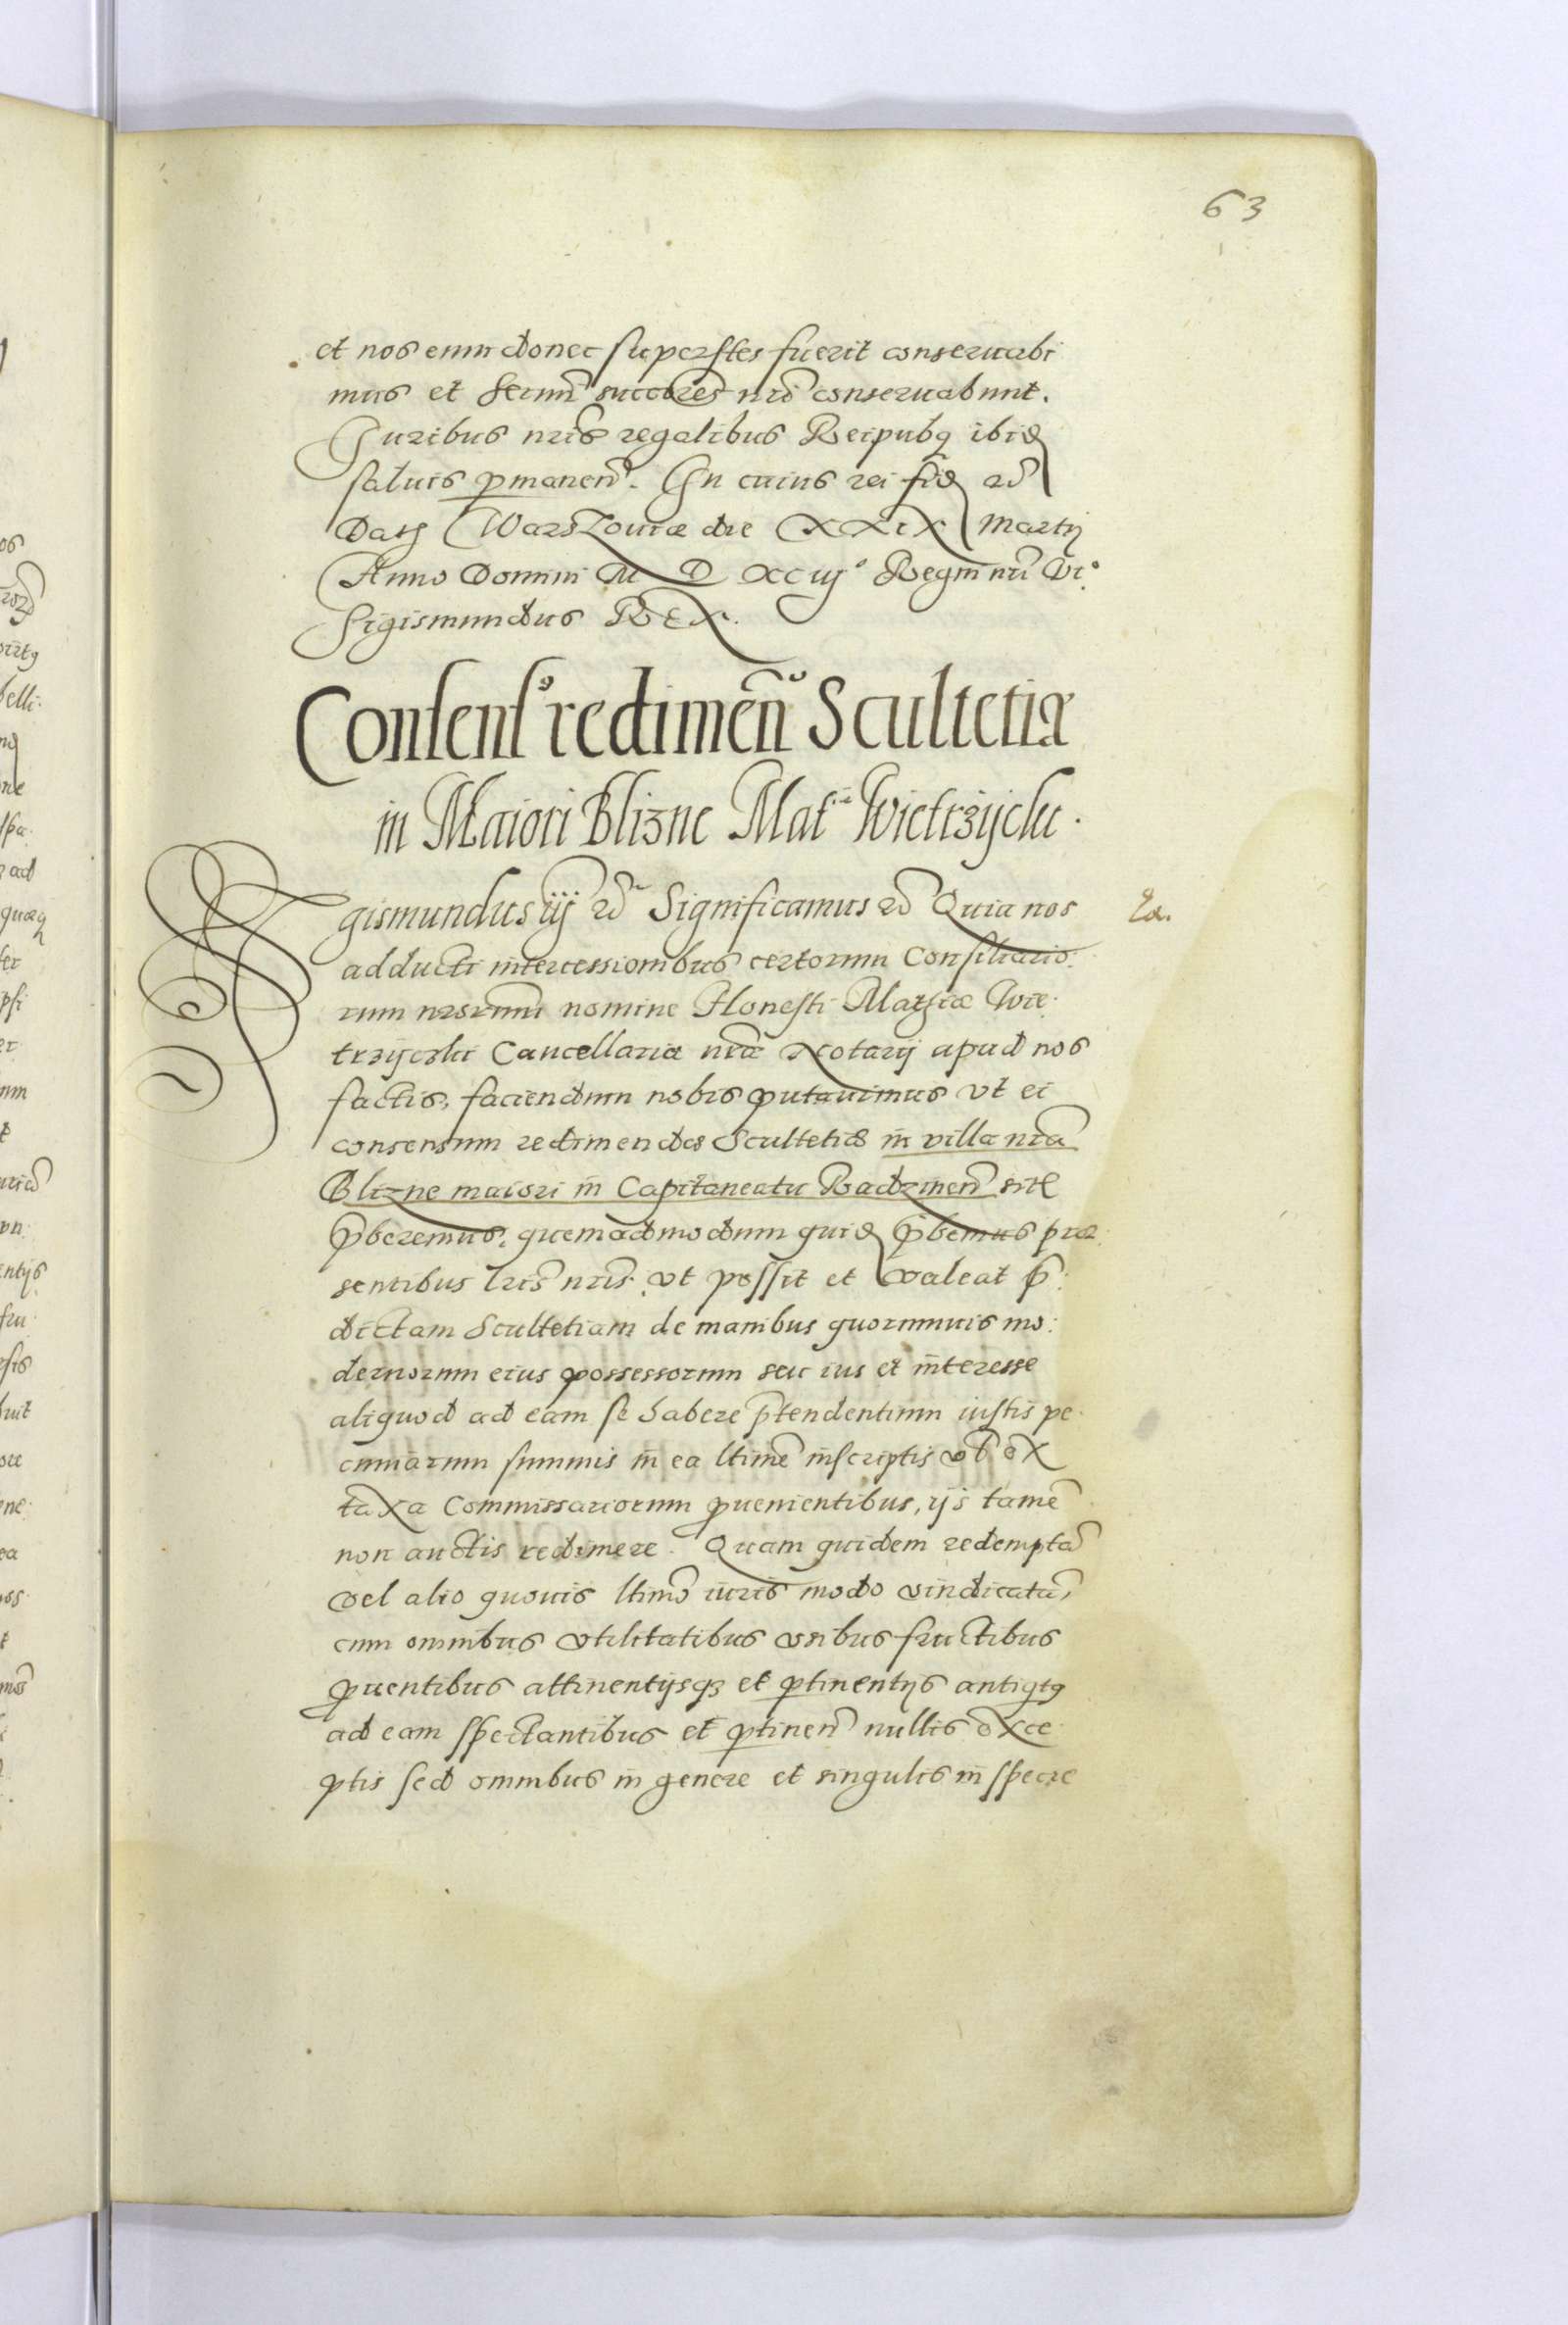 63
et nos eum donec superstes fuerit conseruabi
mus et Serm̄ succores nrī conseruabunt.
Iuribus nrīs regalibus Reipubq ibid
saluis pmanen. In cuius rei fid etc
Datt Warszouiæ die XXIX Martij
Anno Domini M D XCiijº Regni nrī viº.
Sigismundus REX.
Consens9 redimen Scultetiæ
in Maiori Blizne Mat. Wietrzijcki.
Sigismundus iij etc Significamus etc Quia nos
Ea.
adducti intercessionibus certorum Consiliario:
rum nrorum nomine Honesti Mathiæ Wie:
trzijczki Cancellariæ nræ Notarij apud nos
factis, faciendum nobis putauimus vt ei
consensum redimendæ Scultetiæ in villa nra
Blizne maiori in Capitaneatu Radzinen sitæ
pberemus, quemadmodum quid pbemus præ:
sentibus lris nris, vt possit et valeat p:
dictam Scultetiam de manibus quorumuis mo:
dernorum eius possessorum seu ius et interesse
aliquod ad eam se habere ptendentium iustis pe:
cuniarum summis in ea ltime inscriptis vel ex
taxa Commissariorum puenientibus, ijs tamē
non auctis redimere. Quam quidem redemptā
vel alio quouis ltimo iuris modo vindicatā,
cum omnibus vtilitatibus vsibus fructibus
puentibus attinentijsq3 et ptinentijs antiqt9
ad eam spectantibus et ptinen nullis exce
ptis sed omnibus in genere et singulis in specie